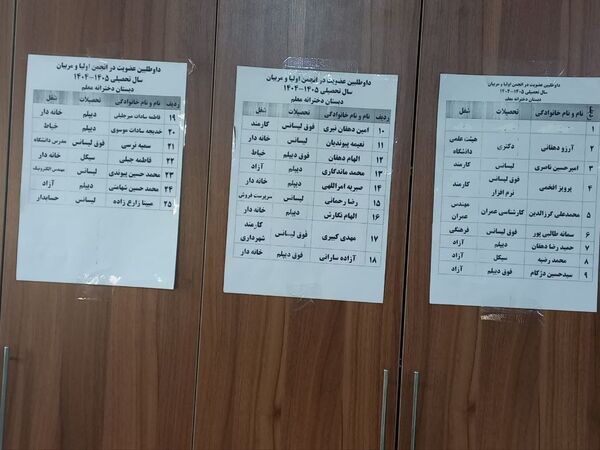 داوطلبین عضویت در انجمن اولیا و مربیان
سال تحصیلی ۱۴۰۵-۱۴۰۴
دبستان دخترانه معلم
ردیف نام و نام خانوادگی تحصیلات شغل
۲ آرزو دهقانی دکتری هیئت علمی دانشگاه
۳ امیرحسین ناصری
۴ پرویز افخمی فوق لیسانس نرم افزار کارمند
۵ محمدعلی گرزالدین کارشناسی عمران مهندس عمران
۶ سمانه طالبی پور فوق لیسانس فرهنگی
۷ حمید رضا دهقان دیپلم آزاد
۸ محمد رضیه سیکل آزاد
۹ سیدحسین دژکام فوق دیپلم آزاد
داوطلبین عضویت در انجمن اولیا و مربیان
سال تحصیلی ۱۴۰۵-۱۴۰۴
دبستان دخترانه معلم
ردیف نام و نام خانوادگی تحصیلات شغل
۱۰ امین دهقان نیری فوق لیسانس کارمند
۱۱ نعیمه پیوندیان لیسانس خانه دار
۱۲ الهام دهقان فوق دیپلم خیاط
۱۳ محمد ماندگاری دیپلم آزاد
۱۴ صبریه امراللهی دیپلم خانه دار
۱۵ رضا رحمانی لیسانس سرپرست فروش
۱۶ الهام نگارش دیپلم خانه دار
۱۷ مهدی کبیری فوق لیسانس کارمند شهرداری
۱۸ آزاده سارانی فوق دیپلم خانه دار
داوطلبین عضویت در انجمن اولیا و مربیان
سال تحصیلی ۱۴۰۵-۱۴۰۴
دبستان دخترانه معلم
ردیف نام و نام خانوادگی تحصیلات شغل
۱۹ فاطمه سادات میرجلیلی دیپلم خانه دار
۲۰ خدیجه سادات موسوی دیپلم خیاط
۲۱ سمیه نرسی فوق لیسانس مدرس دانشگاه
۲۲ فاطمه جبلی سیکل خانه دار
۲۳ محمد حسین پیوندی لیسانس مهندس الکترونیک
۲۴ محمد حسین شهامتی دیپلم آزاد
۲۵ مبینا زارع زاده لیسانس حسابدار